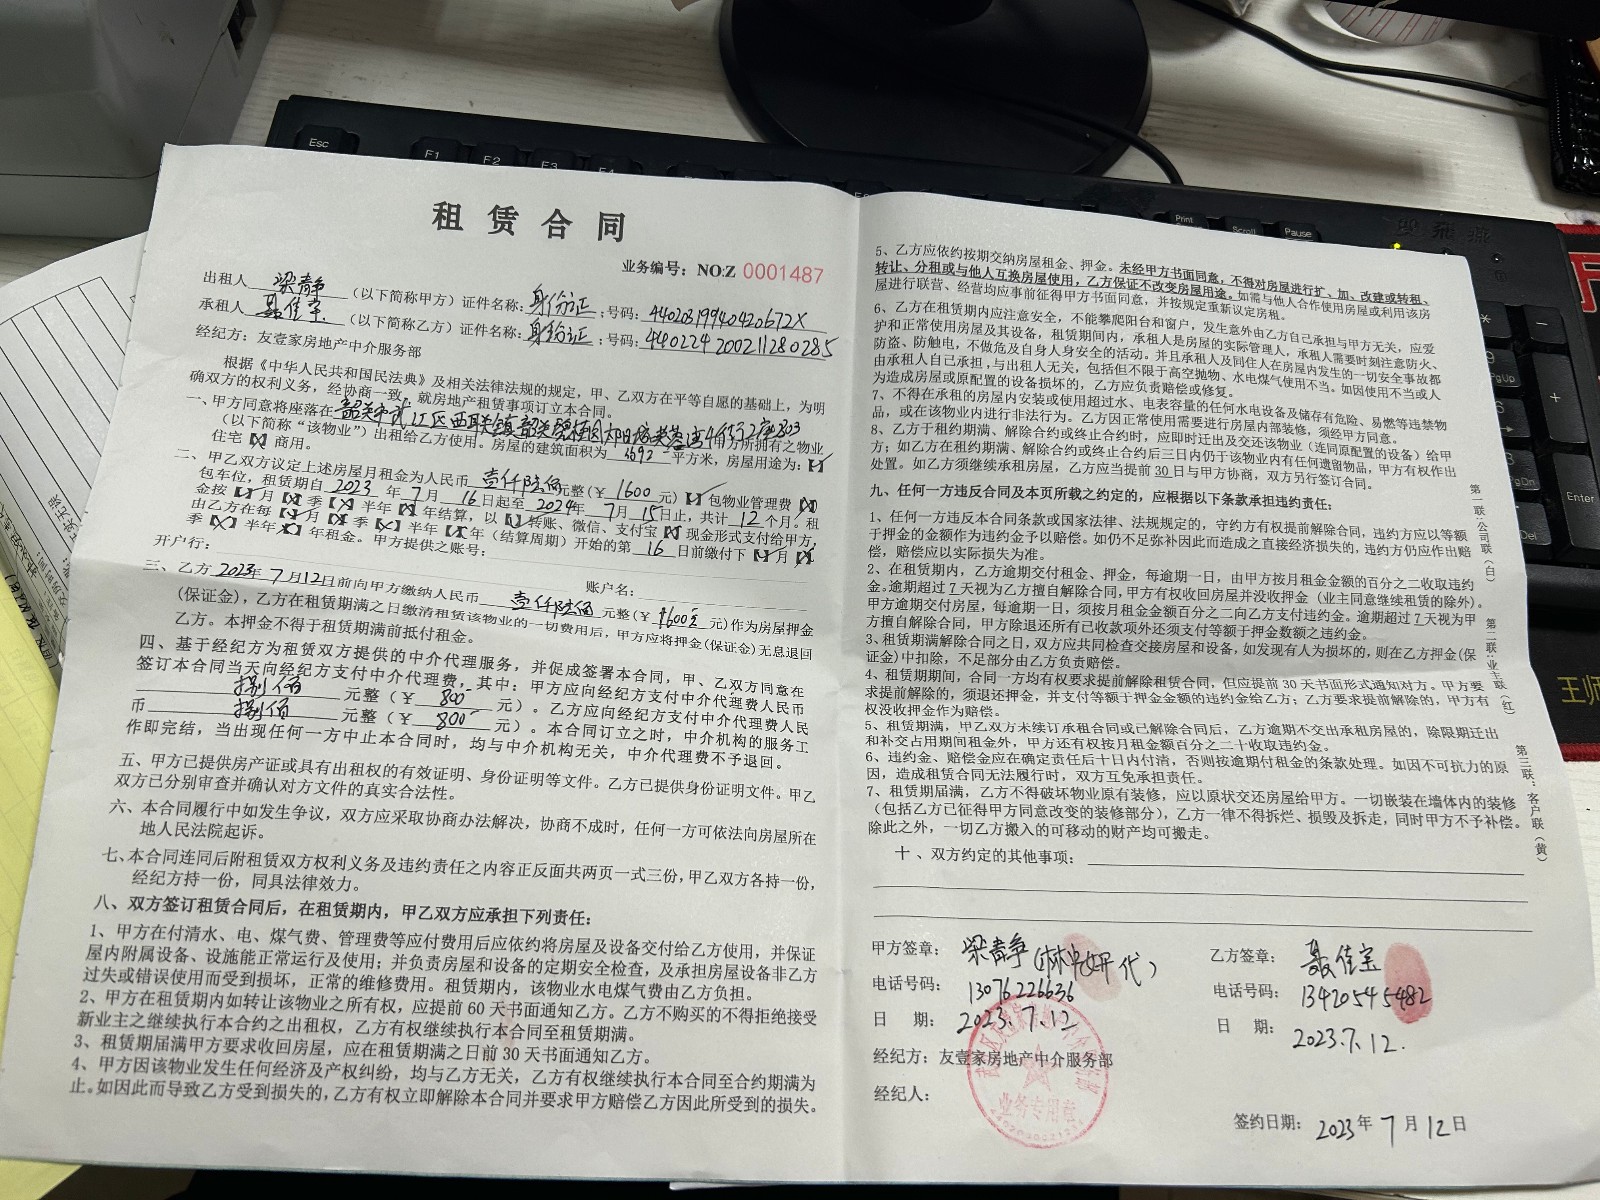 租赁合同
业务编号：NO:Z 0001487
出租人 梁青静 （以下简称甲方）证件名称：身份证；号码：44020319940420672X
承租人 聂佳宝 （以下简称乙方）证件名称：身份证；号码：440224200211280285
经纪方：友壹家房地产中介服务部
根据《中华人民共和国民法典》及相关法律法规的规定，甲、乙双方在平等自愿的基础上，为明
确双方的权利义务，经协商一致，就房地产租赁事项订立本合同。
一、甲方同意将座落在韶关市武江区西联镇韶关碧桂园 4街 2座803 甲方所拥有之物业
（以下简称“该物业”）出租给乙方使用。房屋的建筑面积为 平方米，房屋用途为：【✓】
住宅【X】商用。
二、甲乙双方议定上述房屋月租金为人民币 壹仟陆佰 元整（¥ 1600 元）【✓】包物业管理费【X】
包车位，租赁期自 2023 年 7 月 16 日起至 2024 年 7 月 15 日止，共计 12 个月。租
金按【✓】月【X】季【X】半年【X】年结算，以【✓】转账、微信、支付宝【X】现金形式支付给甲方，
由乙方在每【✓】月【X】季【X】半年【X】年（结算周期）开始的第 16 日前缴付下【✓】月【X】
季【X】半年【X】年租金。甲方提供之账号：
开户行： 账户名：
三、乙方 2023年7月12日前向甲方缴纳人民币 壹仟陆佰 元整（¥ 1600元 元）作为房屋押金
（保证金），乙方在租赁期满之日缴清租赁该物业的一切费用后，甲方应将押金（保证金）无息退回
乙方。本押金不得于租赁期满前抵付租金。
四、基于经纪方为租赁双方提供的中介代理服务，并促成签署本合同，甲、乙双方同意在
签订本合同当天向经纪方支付中介代理费，其中：甲方应向经纪方支付中介代理费人民币
捌佰 元整（¥ 800 元）。乙方应向经纪方支付中介代理费人民
币 捌佰 元整（¥ 800 元）。本合同订立之时，中介机构的服务工
作即完结，当出现任何一方中止本合同时，均与中介机构无关，中介代理费不予退回。
五、甲方已提供房产证或具有出租权的有效证明、身份证明等文件。乙方已提供身份证明文件。甲乙
双方已分别审查并确认对方文件的真实合法性。
六、本合同履行中如发生争议，双方应采取协商办法解决，协商不成时，任何一方可依法向房屋所在
地人民法院起诉。
七、本合同连同后附租赁双方权利义务及违约责任之内容正反面共两页一式三份，甲乙双方各持一份，
经纪方持一份，同具法律效力。
八、双方签订租赁合同后，在租赁期内，甲乙双方应承担下列责任：
1、甲方在付清水、电、煤气费、管理费等应付费用后应依约将房屋及设备交付给乙方使用，并保证
屋内附属设备、设施能正常运行及使用；并负责房屋和设备的定期安全检查，及承担房屋设备非乙方
过失或错误使用而受到损坏，正常的维修费用。租赁期内，该物业水电煤气费由乙方负担。
2、甲方在租赁期内如转让该物业之所有权，应提前 60 天书面通知乙方。乙方不购买的不得拒绝接受
新业主之继续执行本合约之出租权，乙方有权继续执行本合同至租赁期满。
3、租赁期届满甲方要求收回房屋，应在租赁期满之日前 30 天书面通知乙方。
4、甲方因该物业发生任何经济及产权纠纷，均与乙方无关，乙方有权继续执行本合同至合约期满为
止。如因此而导致乙方受到损失的，乙方有权立即解除本合同并要求甲方赔偿乙方因此所受到的损失。
5、乙方应依约按期交纳房屋租金、押金。未经甲方书面同意，不得对房屋进行扩、加、改建或转租、
转让、分租或与他人互换房屋使用，乙方保证不改变房屋用途。如需与他人合作使用房屋或利用该房
屋进行联营、经营均应事前征得甲方书面同意，并按规定重新议定房租。
6、乙方在租赁期内应注意安全，不能攀爬阳台和窗户，发生意外由乙方自己承担与甲方无关，应爱
护和正常使用房屋及其设备，租赁期间内，承租人是房屋的实际管理人，承租人需要时刻注意防火、
防盗、防触电，不做危及自身人身安全的活动。并且承租人及同住人在房屋内发生的一切安全事故都
由承租人自己承担，与出租人无关，包括但不限于高空抛物、水电煤气使用不当。如因使用不当或人
为造成房屋或原配置的设备损坏的，乙方应负责赔偿或修复。
7、不得在承租的房屋内安装或使用超过水、电表容量的任何水电设备及储存有危险、易燃等违禁物
品，或在该物业内进行非法行为。乙方因正常使用需要进行房屋内部装修，须经甲方同意。
8、乙方于租约期满、解除合约或终止合约时，应即时迁出及交还该物业（连同原配置的设备）给甲
方；如乙方在租约期满、解除合约或终止合约后三日内仍于该物业内有任何遗留物品，甲方有权作出
处置。如乙方须继续承租房屋，乙方应当提前 30 日与甲方协商，双方另行签订合同。
九、任何一方违反合同及本页所载之约定的，应根据以下条款承担违约责任：
1、任何一方违反本合同条款或国家法律、法规规定的，守约方有权提前解除合同，违约方应以等额
于押金的金额作为违约金予以赔偿。如仍不足弥补因此而造成之直接经济损失的，违约方仍应作出赔
偿，赔偿应以实际损失为准。
2、在租赁期内，乙方逾期交付租金、押金，每逾期一日，由甲方按月租金金额的百分之二收取违约
金。逾期超过 7 天视为乙方擅自解除合同，甲方有权收回房屋并没收押金（业主同意继续租赁的除外）。
甲方逾期交付房屋，每逾期一日，须按月租金金额百分之二向乙方支付违约金。逾期超过 7 天视为甲
方擅自解除合同，甲方除退还所有已收款项外还须支付等额于押金数额之违约金。
3、租赁期满解除合同之日，双方应共同检查交接房屋和设备，如发现有人为损坏的，则在乙方押金（保
证金）中扣除，不足部分由乙方负责赔偿。
4、租赁期期间，合同一方均有权要求提前解除租赁合同，但应提前 30 天书面形式通知对方。甲方要
求提前解除的，须退还押金，并支付等额于押金金额的违约金给乙方；乙方要求提前解除的，甲方有
权没收押金作为赔偿。
5、租赁期满，甲乙双方未续订承租合同或已解除合同后，乙方逾期不交出承租房屋的，除限期迁出
和补交占用期间租金外，甲方还有权按月租金额百分之二十收取违约金。
6、违约金、赔偿金应在确定责任后十日内付清，否则按逾期付租金的条款处理。如因不可抗力的原
因，造成租赁合同无法履行时，双方互免承担责任。
7、租赁期届满，乙方不得破坏物业原有装修，应以原状交还房屋给甲方。一切嵌装在墙体内的装修
（包括乙方已征得甲方同意改变的装修部分），乙方一律不得拆烂、损毁及拆走，同时甲方不予补偿。
除此之外，一切乙方搬入的可移动的财产均可搬走。
十、双方约定的其他事项：
甲方签章：梁青静（林 妍代）
电话号码：13076226636
日 期：2023.7.12
经纪方：友壹家房地产中介服务部
经纪人：
乙方签章：聂佳宝
电话号码：13420545482
日 期：2023.7.12.
签约日期：2023年7月12日
业务专用章
第一联：公司联（白）
第二联：业主联（红）
第三联：客户联（黄）
Esc
F1
F2
F3
F4
Print
Scroll
Pause
PgUp
PgDn
Enter
Del
王师